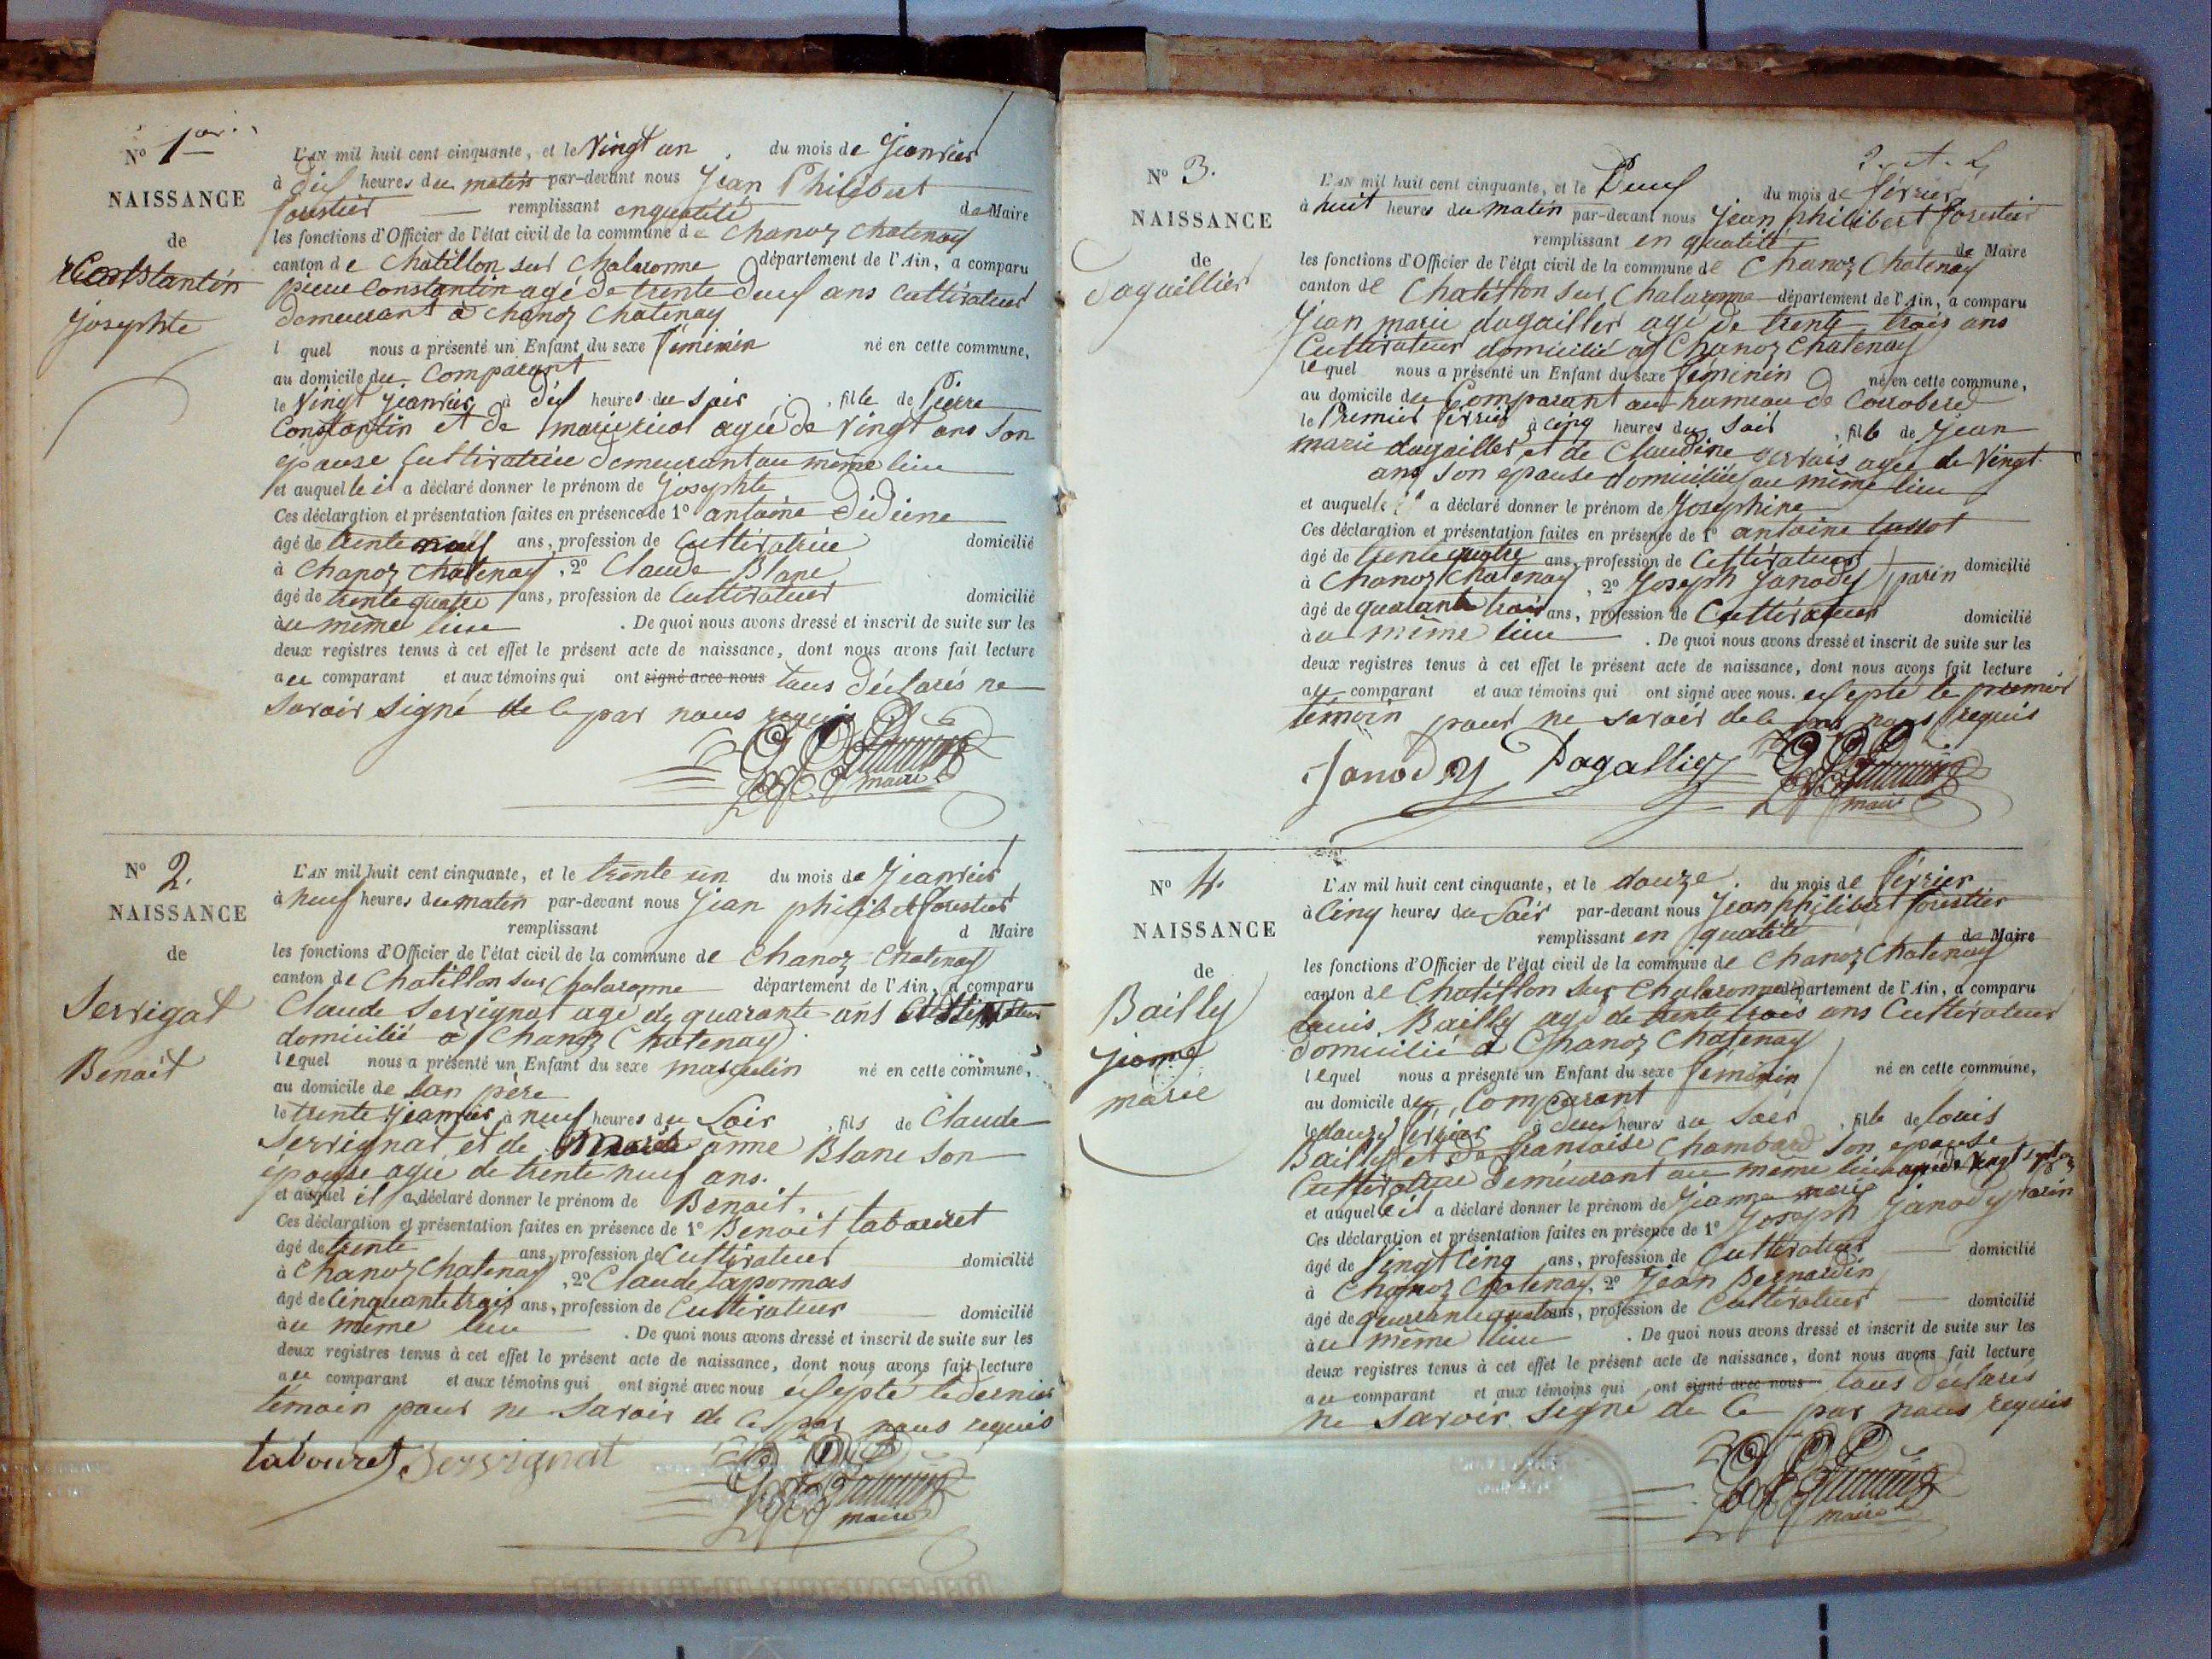 N° 1er
NAISSANCE
de
Constantin
Josephte
L'AN mil huit cent cinquante, et le Vingt un du mois de Jeanvier
à dix heures du matin par-devant nous Jean Philibert
forestier remplissant en qualité de Maire
les fonctions d'Officier de l'état civil de la commune de Chanoz Chatenay
canton de Chatillon sur Chalaronne département de l'Ain, a comparu
pierre Constantin agé de trente deux ans Cultivateur
demeurant à Chanoz Chatenay
l quel nous a présenté un Enfant du sexe féminin né en cette commune,
au domicile du Comparant
le Vingt Jeanvier à dix heures du soir, fille de Pierre
Constantin et de marie agée de Vingt ans son
épause Cultivatrice demeurant au même lieu
et auquelle il a déclaré donner le prénom de Josephte
Ces déclaration et présentation faites en présence de 1° antoine
âgé de trente neuf ans, profession de Cultivatrice domicilié
à Chanoz Chatenay, 2° Claude Blanc
âgé de trente quatre ans, profession de Cultivateur domicilié
àu même lieu. De quoi nous avons dressé et inscrit de suite sur les
deux registres tenus à cet effet le présent acte de naissance, dont nous avons fait lecture
au comparant et aux témoins qui ont signé avec nous taus déclarés ne
savoir signé de ce par nous requis
maire
N° 2.
NAISSANCE
de
Serrigat
Benoit
L'AN mil huit cent cinquante, et le trente un du mois de Jeanvier
à neuf heures du matin par-devant nous Jean philibert forestier
remplissant d Maire
les fonctions d'Officier de l'état civil de la commune de Chanoz Chatenay
canton de Chatillon sur Chalaronne département de l'Ain, a comparu
Claude Serrignat agé de quarante ans Cultivateur
domicilié à Chanoz Chatenay
lequel nous a présenté un Enfant du sexe masculin né en cette commune,
au domicile de san père
le trente Jeanvier à neuf heures du Soir, fils de Claude
Serrignat et de Marie anne Blanc son
épause agée de trente neuf ans.
et auquel il a déclaré donner le prénom de Benoit.
Ces déclaration et présentation faites en présence de 1° Benoit tabouret
âgé de trente ans, profession de Cultivateur domicilié
à Chanoz Chatenay, 2° Claude laponmas
âgé de Cinquante trois ans, profession de Cultivateur domicilié
àu même lieu. De quoi nous avons dressé et inscrit de suite sur les
deux registres tenus à cet effet le présent acte de naissance, dont nous avons fait lecture
au comparant et aux témoins qui ont signé avec nous exsepté le dernier
témoin pour ne savoir de ce par nous requis
tabouret Serrignat
maire
N° 3.
NAISSANCE
de
dagaillier
L'AN mil huit cent cinquante, et le Deux du mois de février
à huit heures du matin par-devant nous Jean philibert forestier
remplissant en qualité de Maire
les fonctions d'Officier de l'état civil de la commune de Chanoz Chatenay
canton de Chatillon sur Chalaronne département de l'Ain, a comparu
Jean marie dagaillier agé de trente trois ans
Cultivateur domicilié à Chanoz Chatenay
lequel nous a présenté un Enfant du sexe féminin né en cette commune,
au domicile du Comparant au hameau de Corrobere
le Premier février à cinq heures du soir, fille de Jean
marie dagaillier et de Claudine gervais agée de Vingt
ans son épause domiciliée au même lieu
et auquelle il a déclaré donner le prénom de Josephine
Ces déclaration et présentation faites en présence de 1° antoine tussot
âgé de trente quatre ans, profession de Cultivateur domicilié
à Chanoz Chatenay, 2° Joseph Janody parin
âgé de quarante trois ans, profession de Cultivateur domicilié
àu même lieu. De quoi nous avons dressé et inscrit de suite sur les
deux registres tenus à cet effet le présent acte de naissance, dont nous avons fait lecture
au comparant et aux témoins qui ont signé avec nous. exsepté le premier
témoin pour ne savoir de ce par nous requis
Janody Dagallier
maire
N° 4.
NAISSANCE
de
Bailly
Jeanne
marie
L'AN mil huit cent cinquante, et le douze. du mois de février
à Cinq heures du Soir par-devant nous Jean philibert forestier
remplissant en qualité de Maire
les fonctions d'Officier de l'état civil de la commune de Chanoz Chatenay
canton de Chatillon sur Chalaronne département de l'Ain, a comparu
louis Bailly agé de trente trois ans Cultivateur
domicilié à Chanoz Chatenay
lequel nous a présenté un Enfant du sexe féminin né en cette commune,
au domicile du Comparant
le douze février à deux heures du Soir, fille de louis
Bailly et de francoise Chambard son épause
Cultivatrice demeurant au même lieu agée de Vingt sept ans
et auquelle il a déclaré donner le prénom de Jeanne marie
Ces déclaration et présentation faites en présence de 1° Joseph Janody parin
âgé de Vingt Cinq ans, profession de Cultivateur domicilié
à Chanoz Chatenay, 2° Jean Bernardin
âgé de quarante quatre ans, profession de Cultivateur domicilié
àu même lieu. De quoi nous avons dressé et inscrit de suite sur les
deux registres tenus à cet effet le présent acte de naissance, dont nous avons fait lecture
au comparant et aux témoins qui ont signé avec nous taus déclarés
ne savoir signé de ce par nous requis
maire